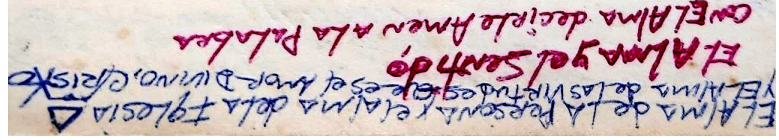 EL Alma de LA Persona y el alma de la Iglesia
Y EL Alma de las VIRTUDES QUE ES el AMOR DIVINO, CRISTO
EL Alma y el Sentido,
con EL Alma decirle Amen a la Palabra